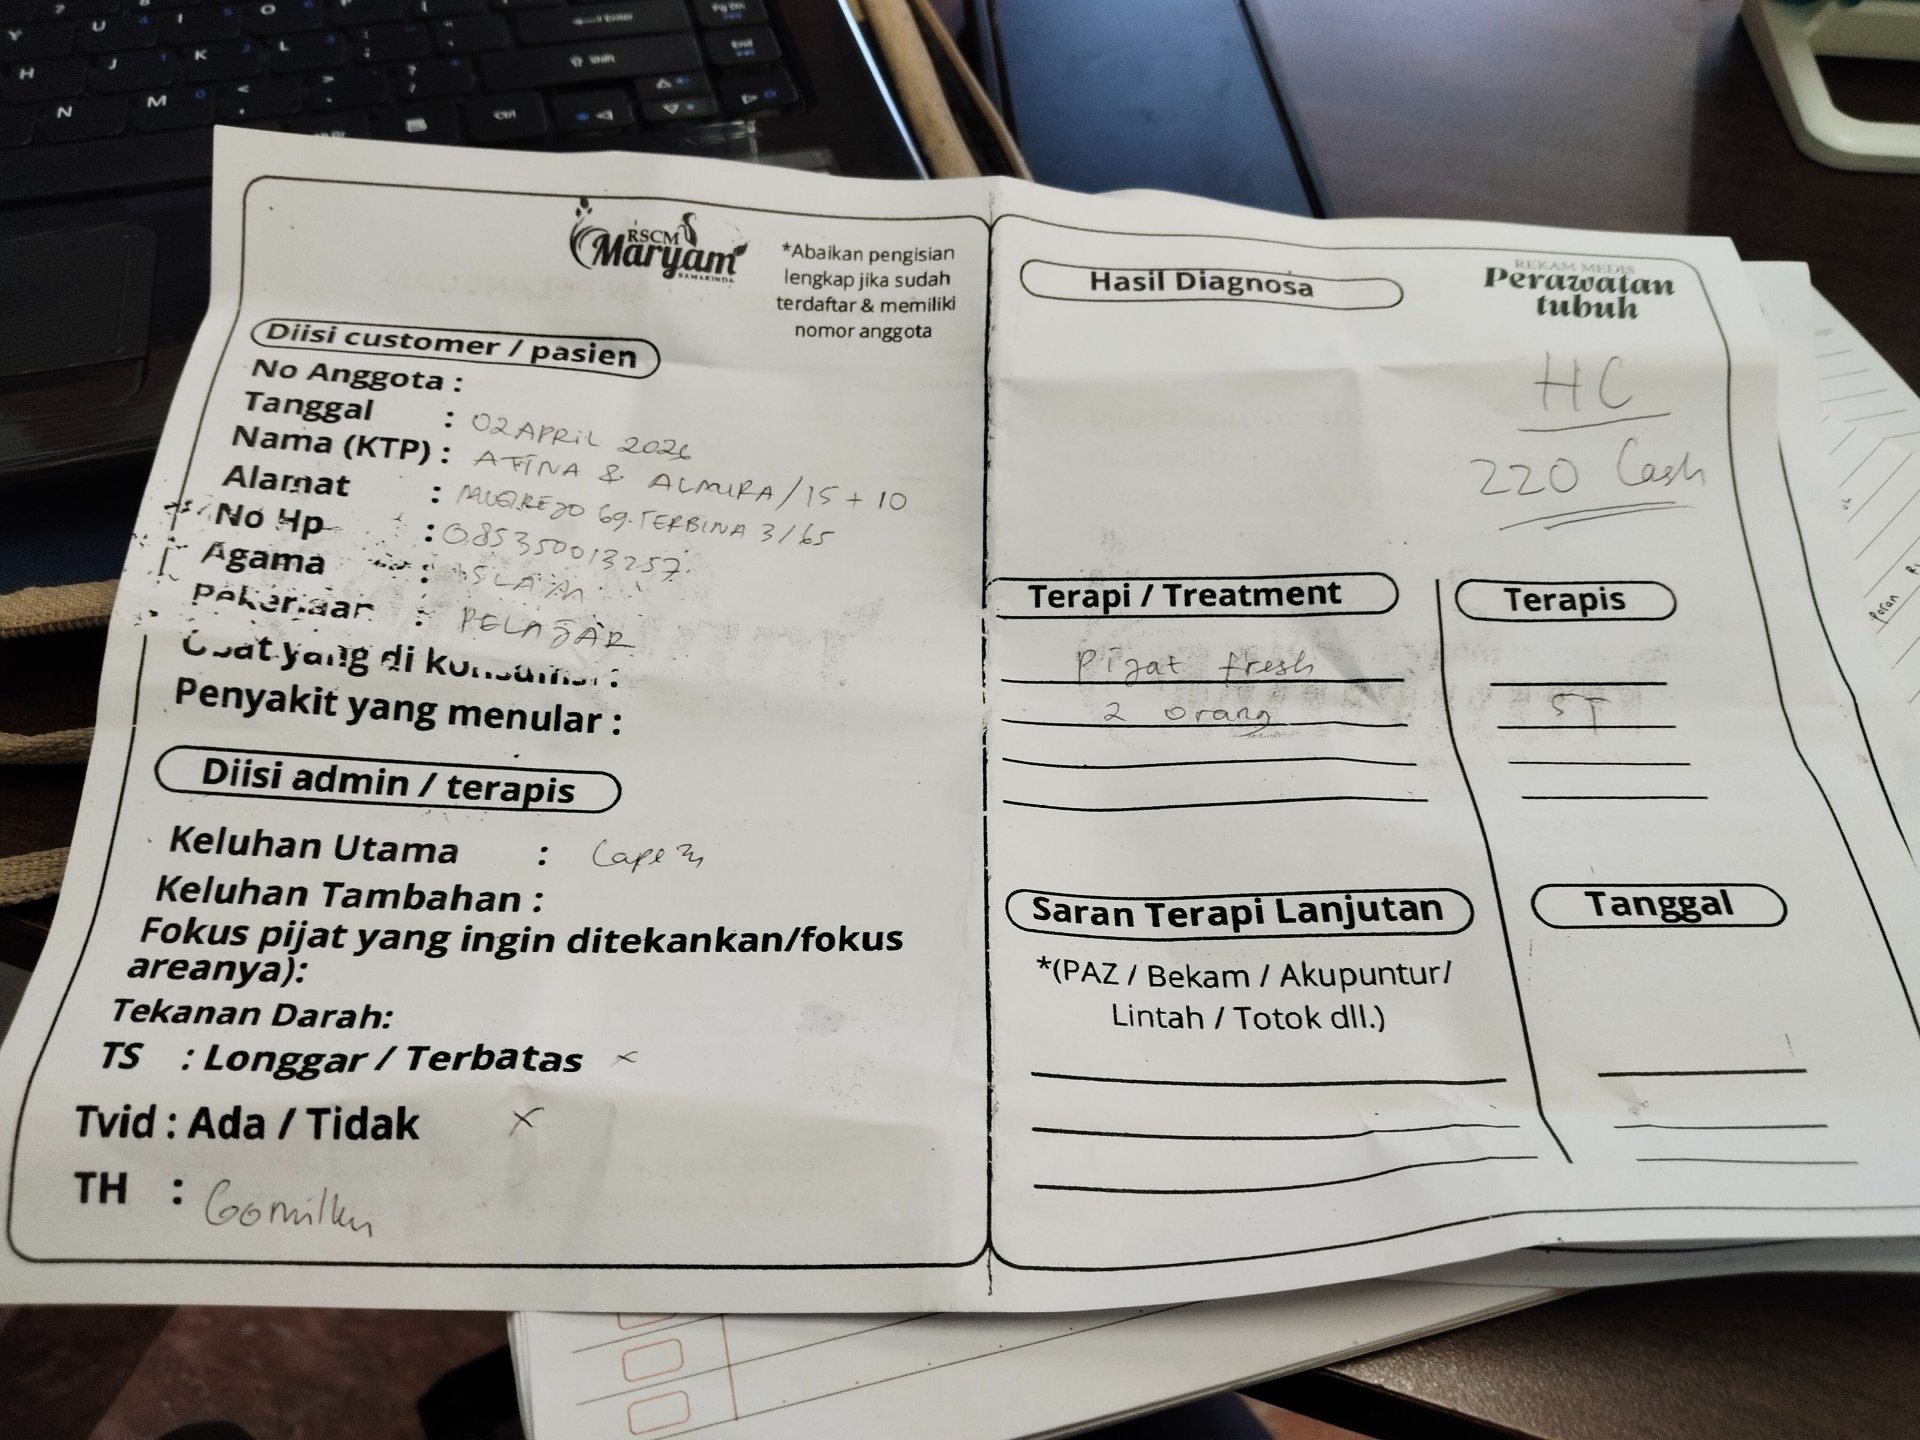 RSCM
Maryam
SAMARINDA
*Abaikan pengisian
lengkap jika sudah
terdaftar & memiliki
nomor anggota
Diisi customer / pasien
No Anggota :
Tanggal : 02 APRIL 2026
Nama (KTP) : ATINA & ALMIRA / 15 + 10
Alamat : MUGIREJO Gg. TERBINA 3/65
No Hp : 085350013257
Agama : ISLAM
Pekerjaan : PELAJAR
Obat yang di konsumsi :
Penyakit yang menular :
Diisi admin / terapis
Keluhan Utama : Cape
Keluhan Tambahan :
Fokus pijat yang ingin ditekankan/fokus
areanya):
Tekanan Darah:
TS : Longgar / Terbatas x
Tvid : Ada / Tidak x
TH :
Hasil Diagnosa
REKAM MEDIS
Perawatan
tubuh
HC
220 Cash
Terapi / Treatment
Pijat fresh
2 orang
Terapis
ST
Saran Terapi Lanjutan
*(PAZ / Bekam / Akupuntur/
Lintah / Totok dll.)
Tanggal